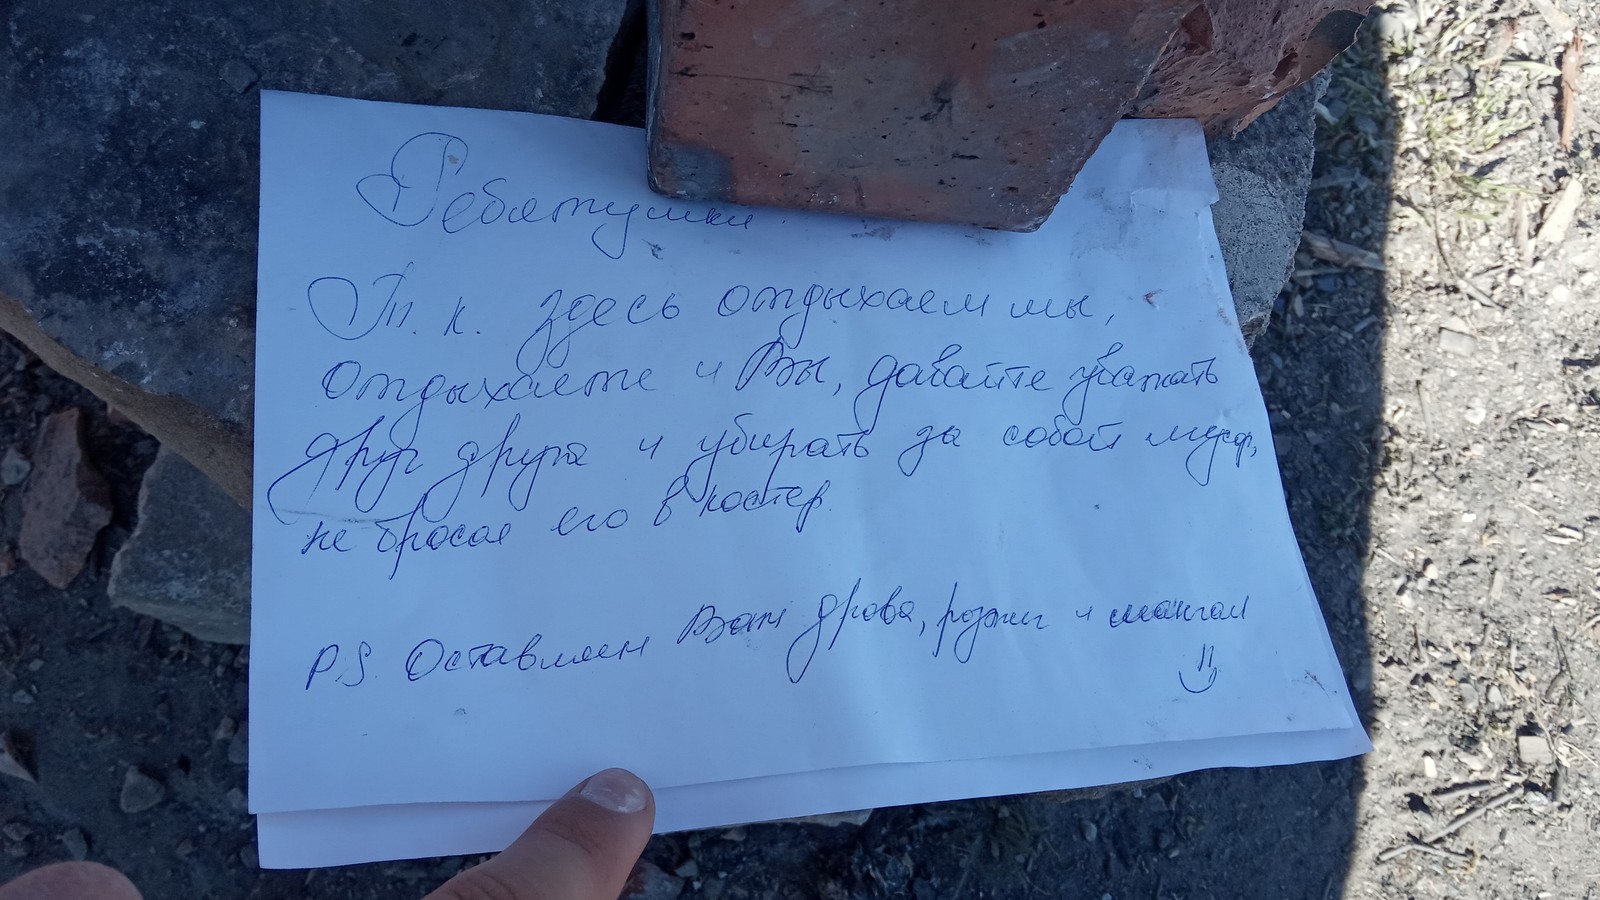 Ребятушки.
Т. к. здесь отдыхаем мы,
отдыхаете и Вы, давайте уважать
друг друга и убирать за собой мусор,
не бросая его в костер.
P.S. Оставляем Вам дрова, розжиг и мангал